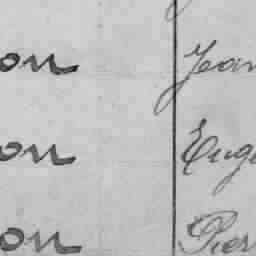 on Jean
on Euge
on Pier